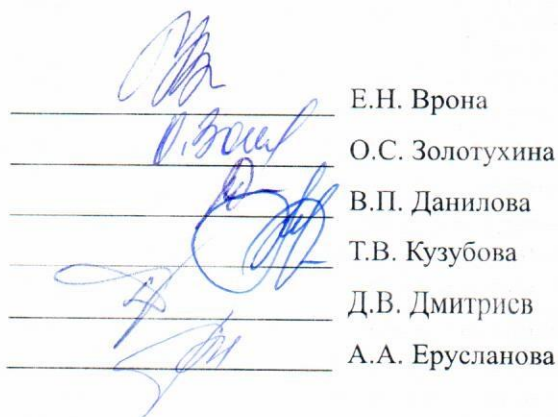 Е.Н. Врона
О.С. Золотухина
В.П. Данилова
Т.В. Кузубова
Д.В. Дмитриев
А.А. Ерусланова